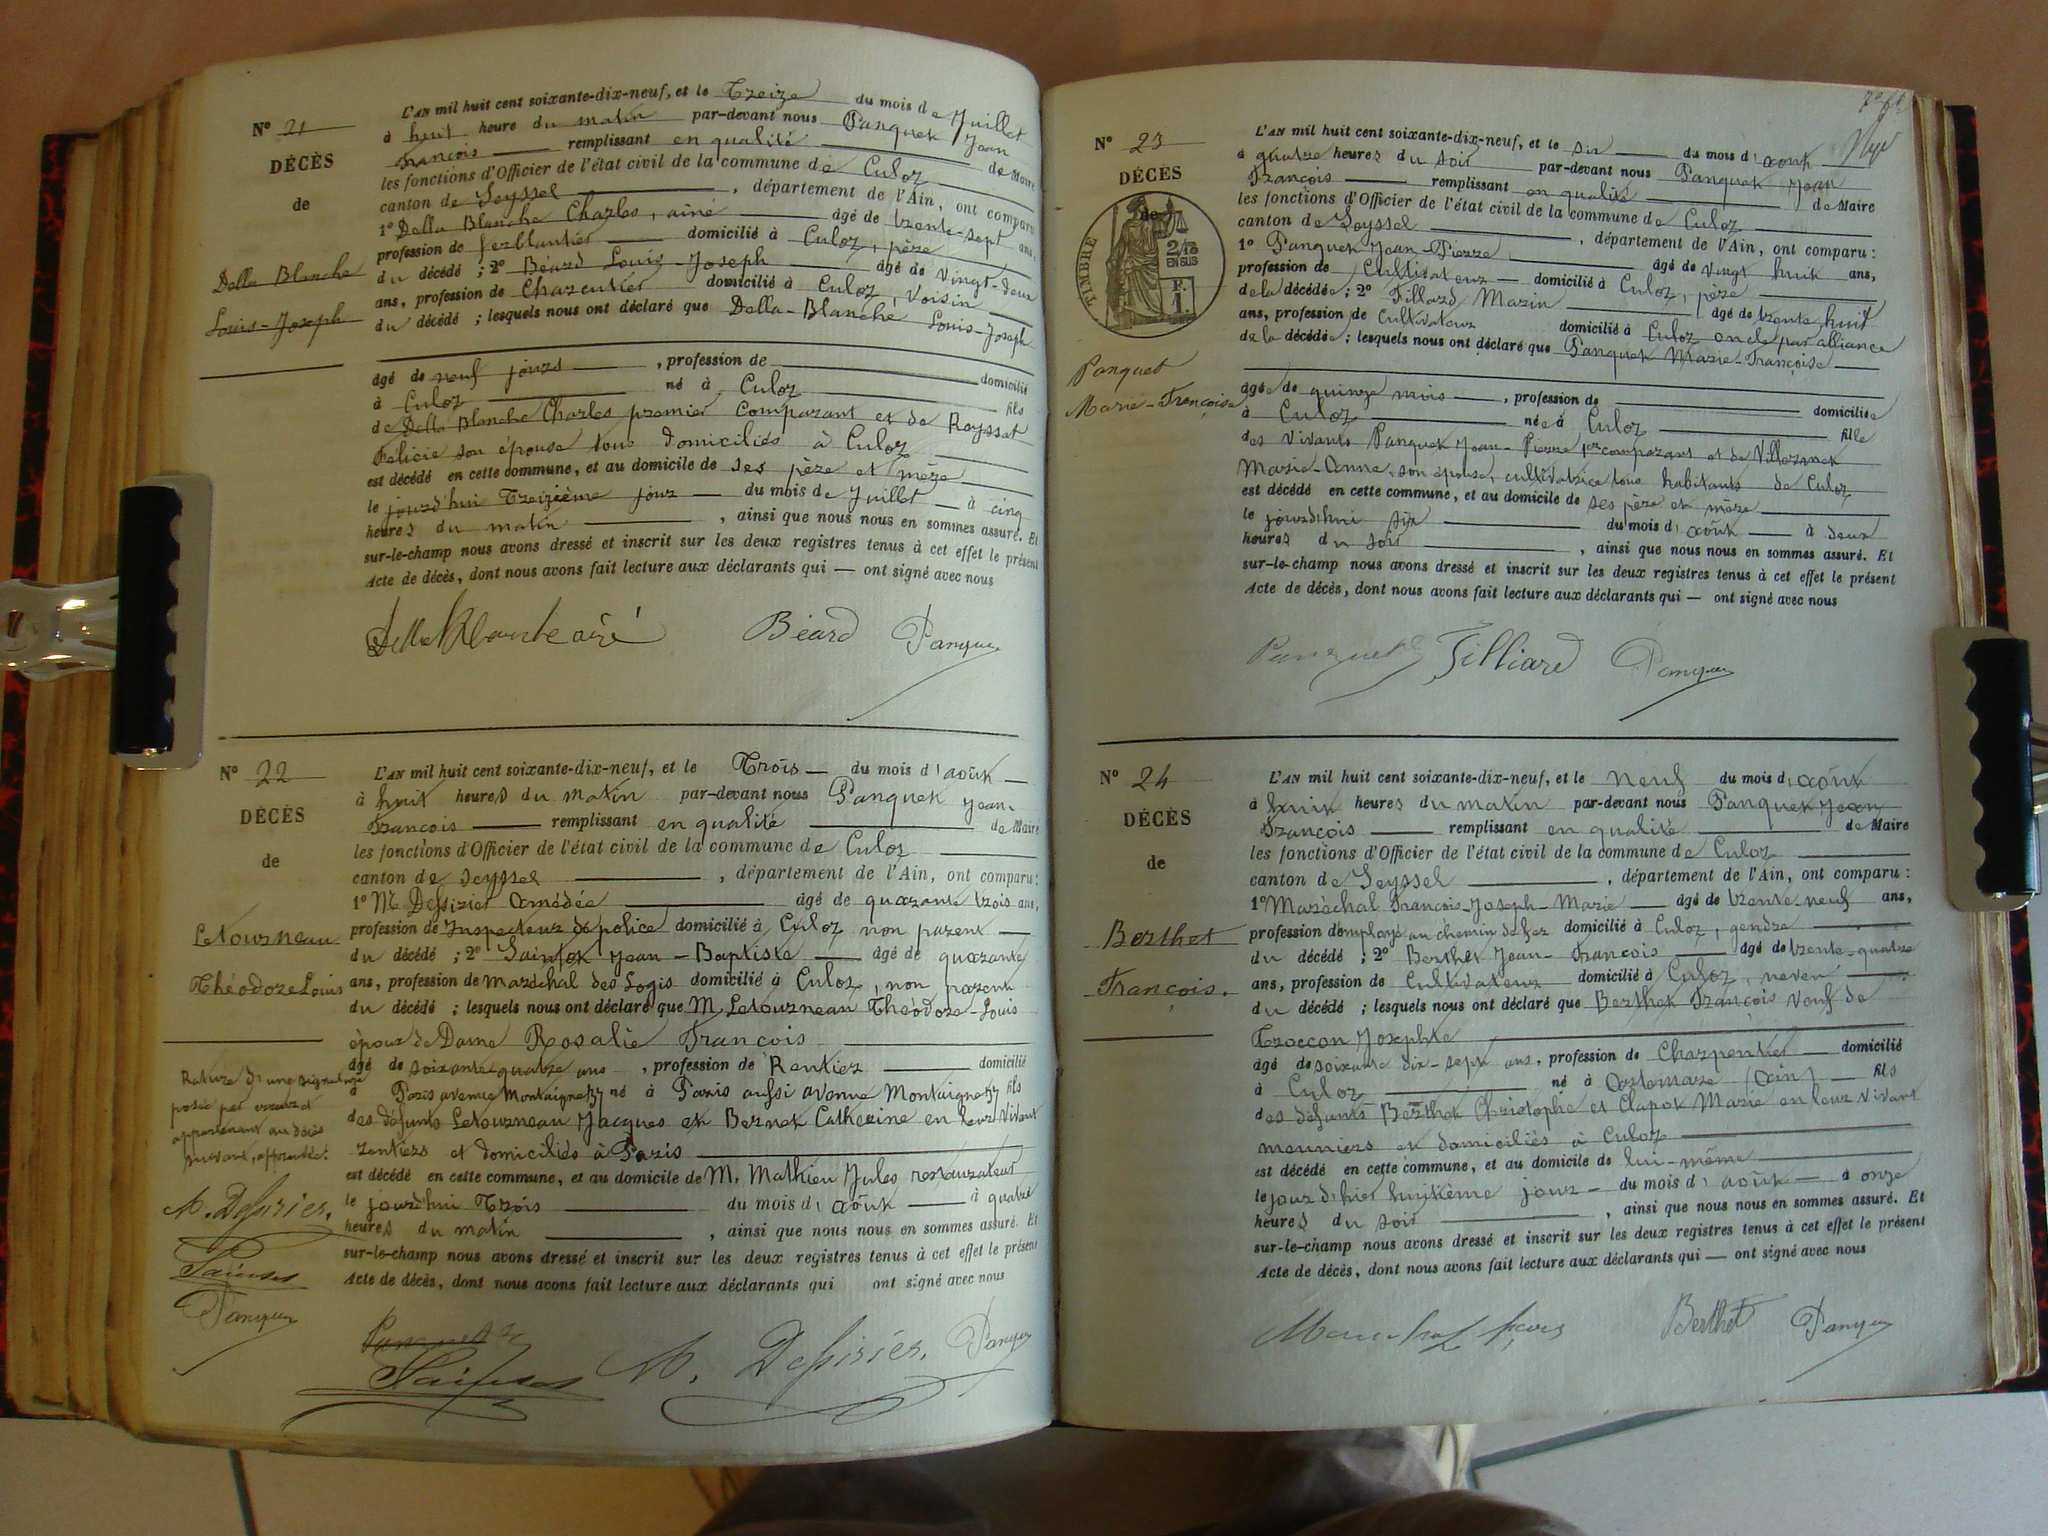 Nº 21
DÉCÈS
de
Della Blanche
Louis-Joseph
L'AN mil huit cent soixante-dix-neuf, et le Treize du mois de Juillet
à huit heure du matin par-devant nous Panquet Jean
François remplissant en qualité de Maire
les fonctions d'Officier de l'état civil de la commune de Culoz
canton de Seyssel, département de l'Ain, ont comparu
1º Della Blanche Charles, ainé âgé de trente-sept ans,
profession de ferblantier domicilié à Culoz, père
du décédé ; 2º Béard Louis-Joseph âgé de vingt-deux
ans, profession de Charcutier domicilié à Culoz, voisin
du décédé ; lesquels nous ont déclaré que Della-Blanche Louis-Joseph
âgé de neuf jours, profession de domicilié
à Culoz né à Culoz fils
de Della Blanche Charles premier comparant et de Reyssat
Félicie son épouse tous domiciliés à Culoz
est décédé en cette commune, et au domicile de ses père et mère
le jourd'hui Treizième jour du mois de Juillet à cinq
heures du matin, ainsi que nous nous en sommes assuré. Et
sur-le-champ nous avons dressé et inscrit sur les deux registres tenus à cet effet le présent
Acte de décès, dont nous avons fait lecture aux déclarants qui — ont signé avec nous
Della Blanche ainé Béard Panquet
Nº 22
DÉCÈS
de
Letourneau
Théodore Louis
Rature d'une signature
posée par erreur et
appartenant au décès
suivant, approuvée.
M. Dessirier.
Panquet
L'AN mil huit cent soixante-dix-neuf, et le Trois du mois d'août
à huit heures du matin par-devant nous Panquet Jean-
François remplissant en qualité de Maire
les fonctions d'Officier de l'état civil de la commune de Culoz
canton de Seyssel, département de l'Ain, ont comparu :
1º M. Dessirier Amédée âgé de quarante trois ans,
profession de Inspecteur de police domicilié à Culoz non parent
du décédé ; 2º Jean-Baptiste âgé de quarante
ans, profession de maréchal des Logis domicilié à Culoz, non parent
du décédé ; lesquels nous ont déclaré que M. Letourneau Théodore-Louis
époux de Dame Rosalie François
âgé de soixante quatre ans, profession de Rentier domicilié
à Paris avenue Montaigne 57 né à Paris aussi avenue Montaigne 57 fils
des défunts Letourneau Jacques et Bernet Catherine en leur vivant
rentiers et domiciliés à Paris
est décédé en cette commune, et au domicile de M. Mathieu Jules restaurateur
le jourd'hui Trois du mois d'août à quatre
heures du matin, ainsi que nous nous en sommes assuré. Et
sur-le-champ nous avons dressé et inscrit sur les deux registres tenus à cet effet le présent
Acte de décès, dont nous avons fait lecture aux déclarants qui ont signé avec nous
Panquet
M. Dessirier. Panquet
Nº 23
DÉCÈS
de
TIMBRE
2/10
EN SUS
F.
1.
Panquet
Marie-Françoise
L'AN mil huit cent soixante-dix-neuf, et le six du mois d'août
à quatre heures du soir par-devant nous Panquet Jean
François remplissant en qualité de Maire
les fonctions d'Officier de l'état civil de la commune de Culoz
canton de Seyssel, département de l'Ain, ont comparu :
1º Panquet Jean-Pierre âgé de vingt huit ans,
profession de Cultivateur domicilié à Culoz, père
de la décédée ; 2º Tillard Marin âgé de trente huit
ans, profession de cultivateur domicilié à Culoz oncle par alliance
de la décédée ; lesquels nous ont déclaré que Panquet Marie-Françoise
âgée de quinze mois, profession de domiciliée
à Culoz née à Culoz fille
des vivants Panquet Jean-Pierre 1er comparant et de Villermet
Marie-Anne, son épouse, cultivatrice tous habitants de Culoz
est décédé en cette commune, et au domicile de ses père et mère
le jourd'hui six du mois d'août à deux
heures du soir, ainsi que nous nous en sommes assuré. Et
sur-le-champ nous avons dressé et inscrit sur les deux registres tenus à cet effet le présent
Acte de décès, dont nous avons fait lecture aux déclarants qui — ont signé avec nous
Panquet Tilliard Panquet
Nº 24
DÉCÈS
de
Berthet
François.
L'AN mil huit cent soixante-dix-neuf, et le neuf du mois d'août
à huit heures du matin par-devant nous Panquet Jean
François remplissant en qualité de Maire
les fonctions d'Officier de l'état civil de la commune de Culoz
canton de Seyssel, département de l'Ain, ont comparu :
1º Maréchal François-Joseph-Marie âgé de trente-neuf ans,
profession d'employé au chemin de fer domicilié à Culoz, gendre
du décédé ; 2º Berthet Jean-François âgé de trente-quatre
ans, profession de Cultivateur domicilié à Culoz, neveu
du décédé ; lesquels nous ont déclaré que Berthet François veuf de
Troccon Josephte
âgé de soixante dix-sept ans, profession de Charpentier domicilié
à Culoz né à Artemare (Ain) fils
des défunts Berthet Christophe et Clapot Marie en leur vivant
meuniers et domiciliés à Culoz
est décédé en cette commune, et au domicile de lui-même
le jour d'hier huitième jour du mois d'août à onze
heures du soir, ainsi que nous nous en sommes assuré. Et
sur-le-champ nous avons dressé et inscrit sur les deux registres tenus à cet effet le présent
Acte de décès, dont nous avons fait lecture aux déclarants qui — ont signé avec nous
Berthet Panquet